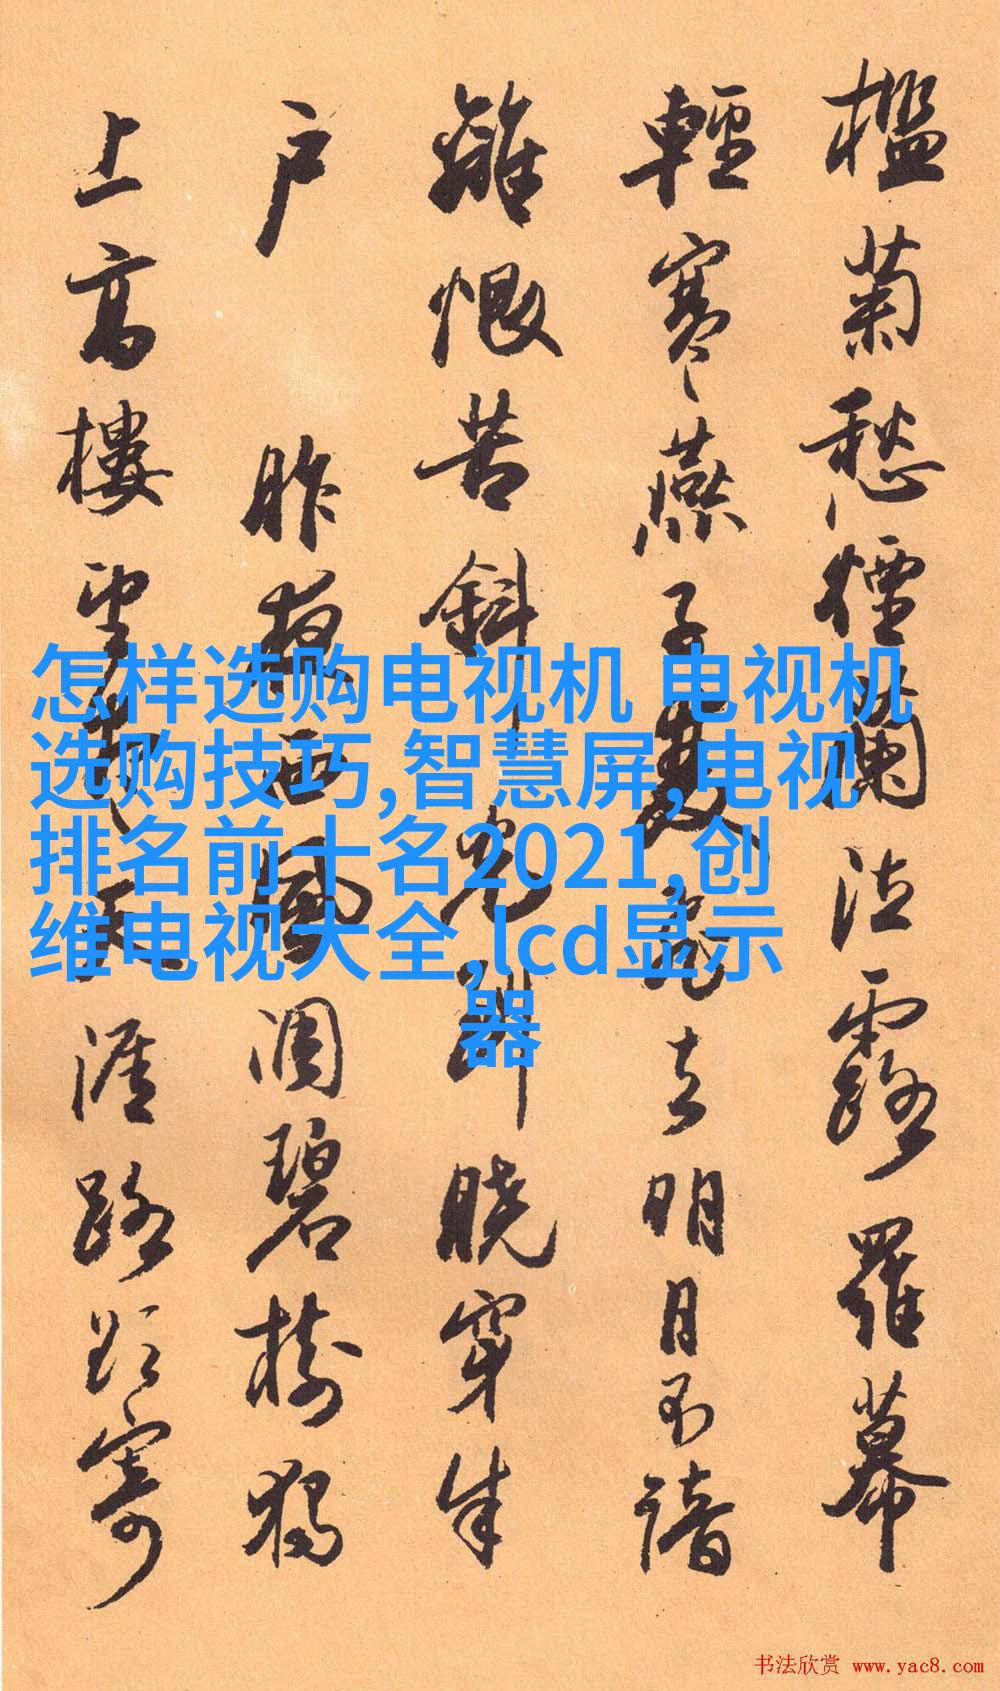 檻菊愁煙蘭泣露羅幕
輕寒燕子雙飛去明月不諳
離恨苦斜光到曉穿朱
户 昨夜西風凋碧樹獨
上高樓望盡天涯路欲寄
怎样选购电视机 电视机
选购技巧,智慧屏,电视
排名前十名2021,创
维电视大全,lcd显示
器
书法欣赏 www.yac8.com